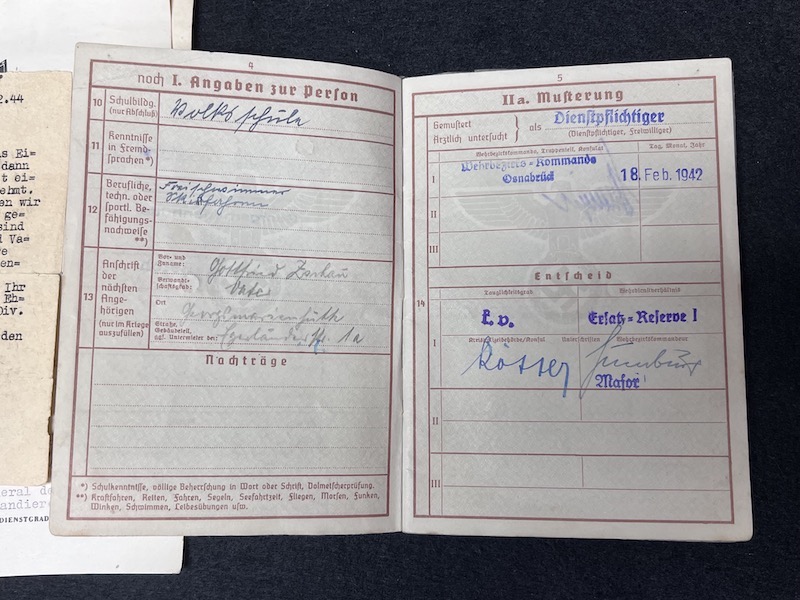 2.44
s Ei=
dann
t ei=
ehmt.
en wir
ge=
sind
d Va=
e
en=
Ihr
Eh=
Div.
den
eral de
andiere
DIENSTGRAD
4
noch I. Angaben zur Person
10 Schulbildg. (nur Abschluß)
Volksschule
11 Kenntnisse in Fremd-sprachen *)
12 Berufliche, techn. oder sportl. Be-fähigungs-nachweise **)
Freischwimmer
Skifahren
13 Anschrift der nächsten Ange-hörigen (nur im Kriege auszufüllen)
Vor- und Zuname:
Gottfried
Verwandt-schaftsgrad:
Vater
Ort
Georgsmarienhütte
Straße, Gebäudeteil, ggf. Untermieter bei:
Str. 1a
Nachträge
*) Schulkenntnisse, völlige Beherrschung in Wort oder Schrift, Dolmetscherprüfung.
**) Kraftfahren, Reiten, Fahren, Segeln, Seefahrtzeit, Fliegen, Morsen, Funken,
Winken, Schwimmen, Leibesübungen usw.
5
IIa. Musterung
Gemustert
Ärztlich untersucht } als Dienstpflichtiger
(Dienstpflichtiger, Freiwilliger)
Wehrbezirkskommando, Truppenteil, Konsulat
Tag, Monat, Jahr
I Wehrbezirks-Kommando
Osnabrück
18. Feb. 1942
II
III
Entscheid
14
Tauglichkeitsgrad
Wehrdienstverhältnis
k.v.
Ersatz=Reserve I
I
Kreispolizeibehörde/Konsul
Unterschriften
Wehrbezirkskommandeur
Major
II
III